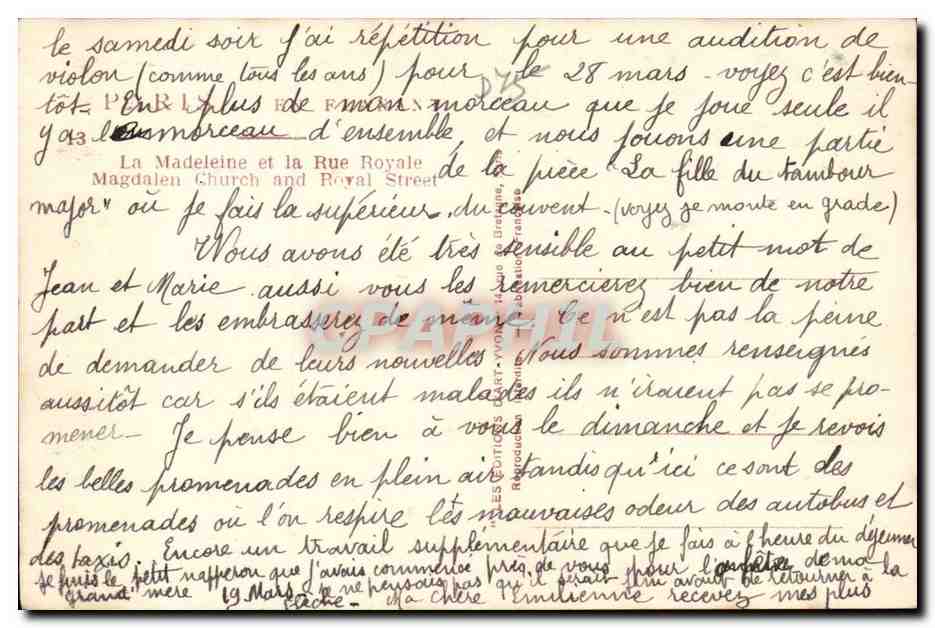 le samedi soir j'ai répétition pour une audition de
violon (comme tous les ans) pour le 28 mars - voyez c'est bien-
tôt - En plus de mon morceau que je joue seule il
y a morceau d'ensemble, et nous jouons une partie
de la pièce "La fille du tambour
major" où je fais la supérieur du couvent - (voyez je monte en grade)
Nous avons été très sensible au petit mot de
Jean et Marie aussi vous les remercierez bien de notre
part et les embrasserez de même. Ce n'est pas la peine
de demander de leurs nouvelles. Nous sommes renseignés
aussitôt car s'ils étaient malades ils n'iraient pas se pro-
mener - Je pense bien à vous le dimanche et je revois
les belles promenades en plein air tandis qu'ici ce sont des
promenades où l'on respire les mauvaises odeur des autobus et
des taxis. Encore un travail supplémentaire que je fais à l'heure du déjeuner
je finis le petit napperon que j'avais commencé près de vous pour la fête de ma
grand'mère 19 Mars - je ne pensais pas qu'il serait fini avant de retourner à la
Flèche - Ma chère Emilienne recevez mes plus
PARIS
13
La Madeleine et la Rue Royale
Magdalen Church and Royal Street
"LES EDITIONS D'ART YVON" 14, rue de Bretagne,
Reproduction interdite - Fabrication Française
D75
CPAPHIL